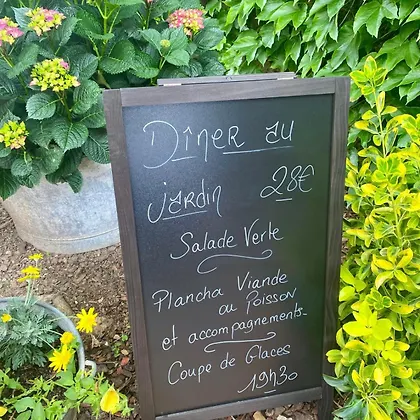 Dîner au
jardin 28€
Salade Verte
Plancha Viande
ou Poisson
et accompagnements-
Coupe de Glaces
19h30